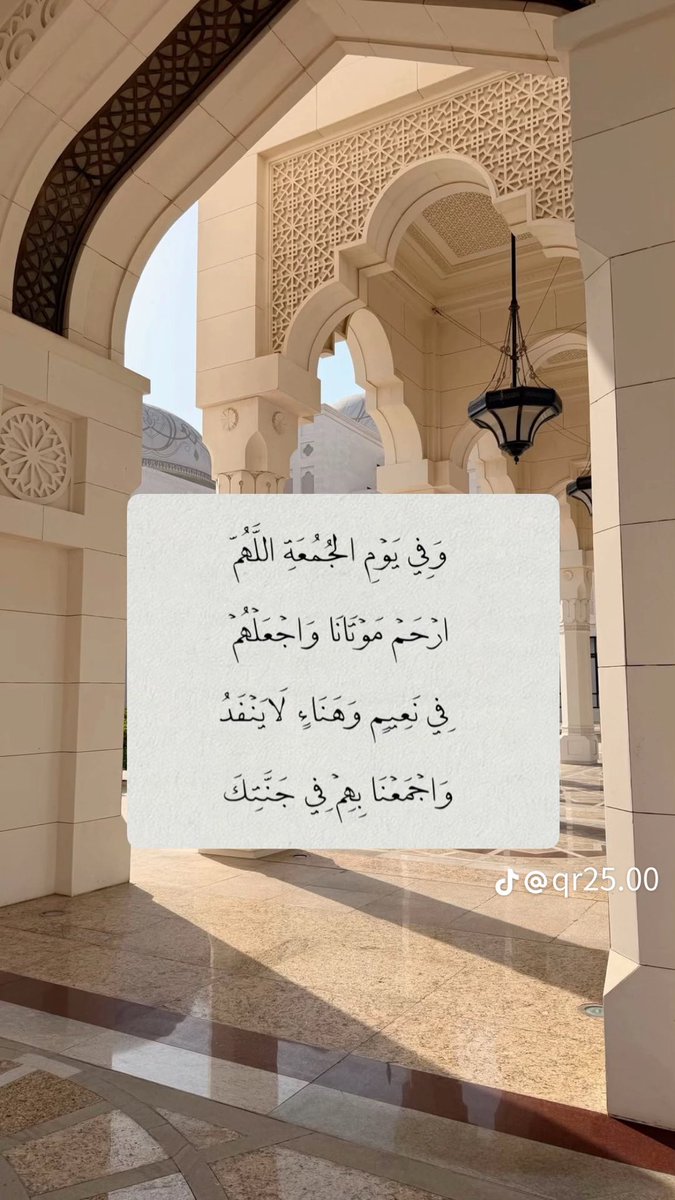 وَفِي يَوْمِ الجُمُعَةِ اللَّهُمّ
ارْحَمْ مَوْتَانَا وَاجْعَلْهُمْ
فِي نَعِيمٍ وَهَنَاءٍ لَايَنْفَدُ
وَاجْمَعْنَا بِهِمْ فِي جَنَّتِكَ
@qr25.00